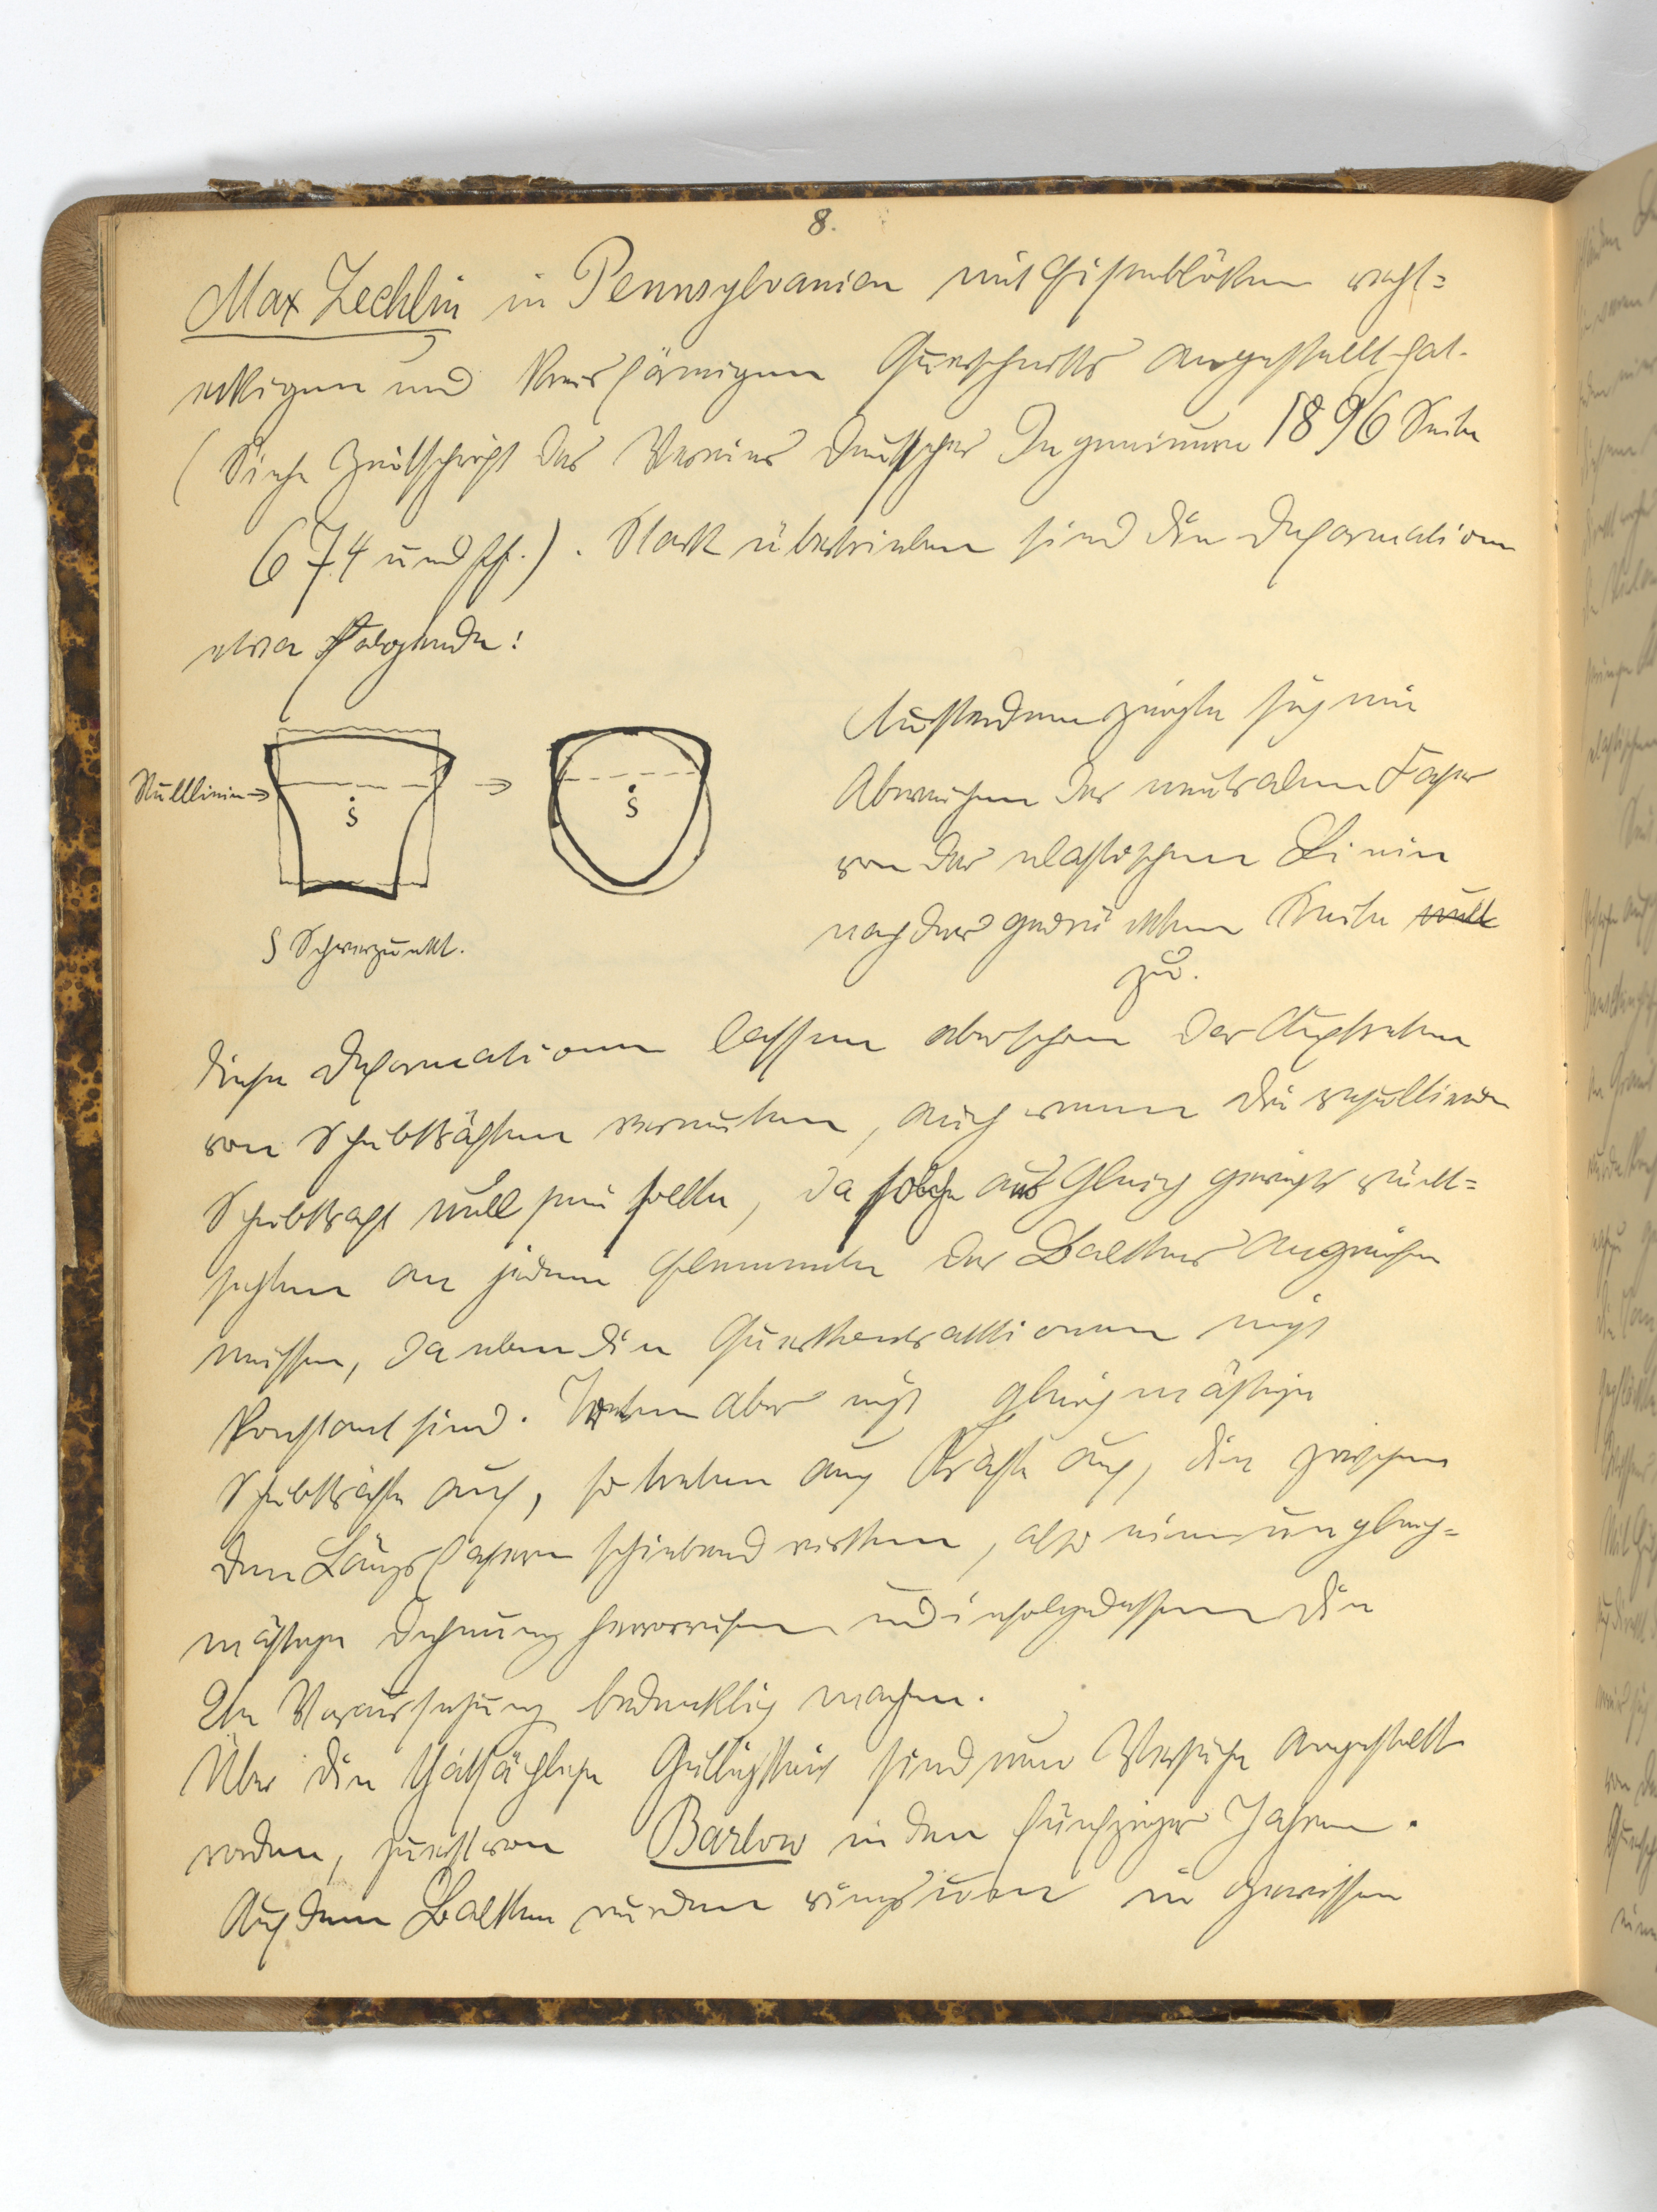 8.
Max Zechlin in Pennsylvanien mit Eisenblöcken recht=
eckigen und kreisförmigen Querschnitts angestellt hat.
(Siehe Zeitschrift des Vereines deutscher Ingenieure 1896 Seite
674 und ff.). Stark übertrieben sind die Deformationen
etwa folgende:
Nulllinie →
S
S
S Schwerpunkt.
Ausserdem zeigte sich ein
Abweichen der neutralen Faser
von der elastischen Linie
nach der gedrückten Seite null
zu.
Diese Deformationen lassen aber schon das Auftreten
von Schubkräften vermuten, auch wenn die resultierende
Schubkraft null sein sollte, da solche aus Gleichgewichtsrück=
sichten an jedem Elemente des Balkens angreifen
müssen, da eben die Querkontraktionen nicht
konstant sind. Treten aber nicht gleichmässige
Schubkräfte auf, so treten auch Kräfte auf, die zwischen
den Längsfasern schiebend wirken, also eine ungleich=
mässige Dehnung hervorrufen und infolgedessen die
2te Voraussetzung bedenklich machen.
Über die thatsächliche Gültigkeit sind nun Versuche angestellt
worden, zuerst von Barlow in den fünfziger Jahren.
Auf dem Balken wurden ringsum in gewissen